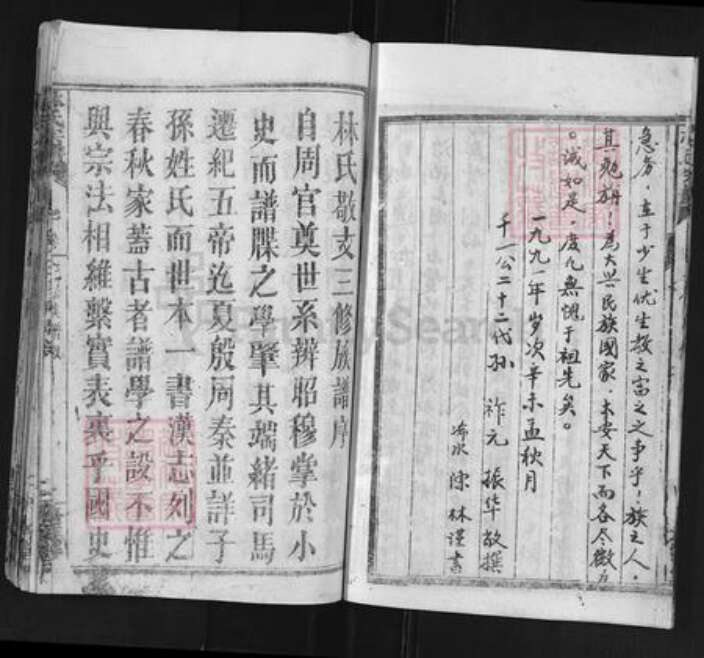 急务，在于少生优生教之富之之事乎！族之人，
其勉旃！为大兴民族国家，求安天下而各尽微
。诚如是，庶几无愧于祖先矣。
一九九一年岁次辛未孟秋月
千一公二十二代孙 祚元 振华敬撰
浠水 涂林谨书
林氏敬支三修族譜序
自周官奠世系辨昭穆掌於小
史而譜牒之學肇其端緒司馬
遷紀五帝迄夏殷周秦並詳子
孫姓氏而世本一書漢志列之
春秋家蓋古者譜學之設不惟
與宗法相維繫實表裏乎國史
FamilySearch